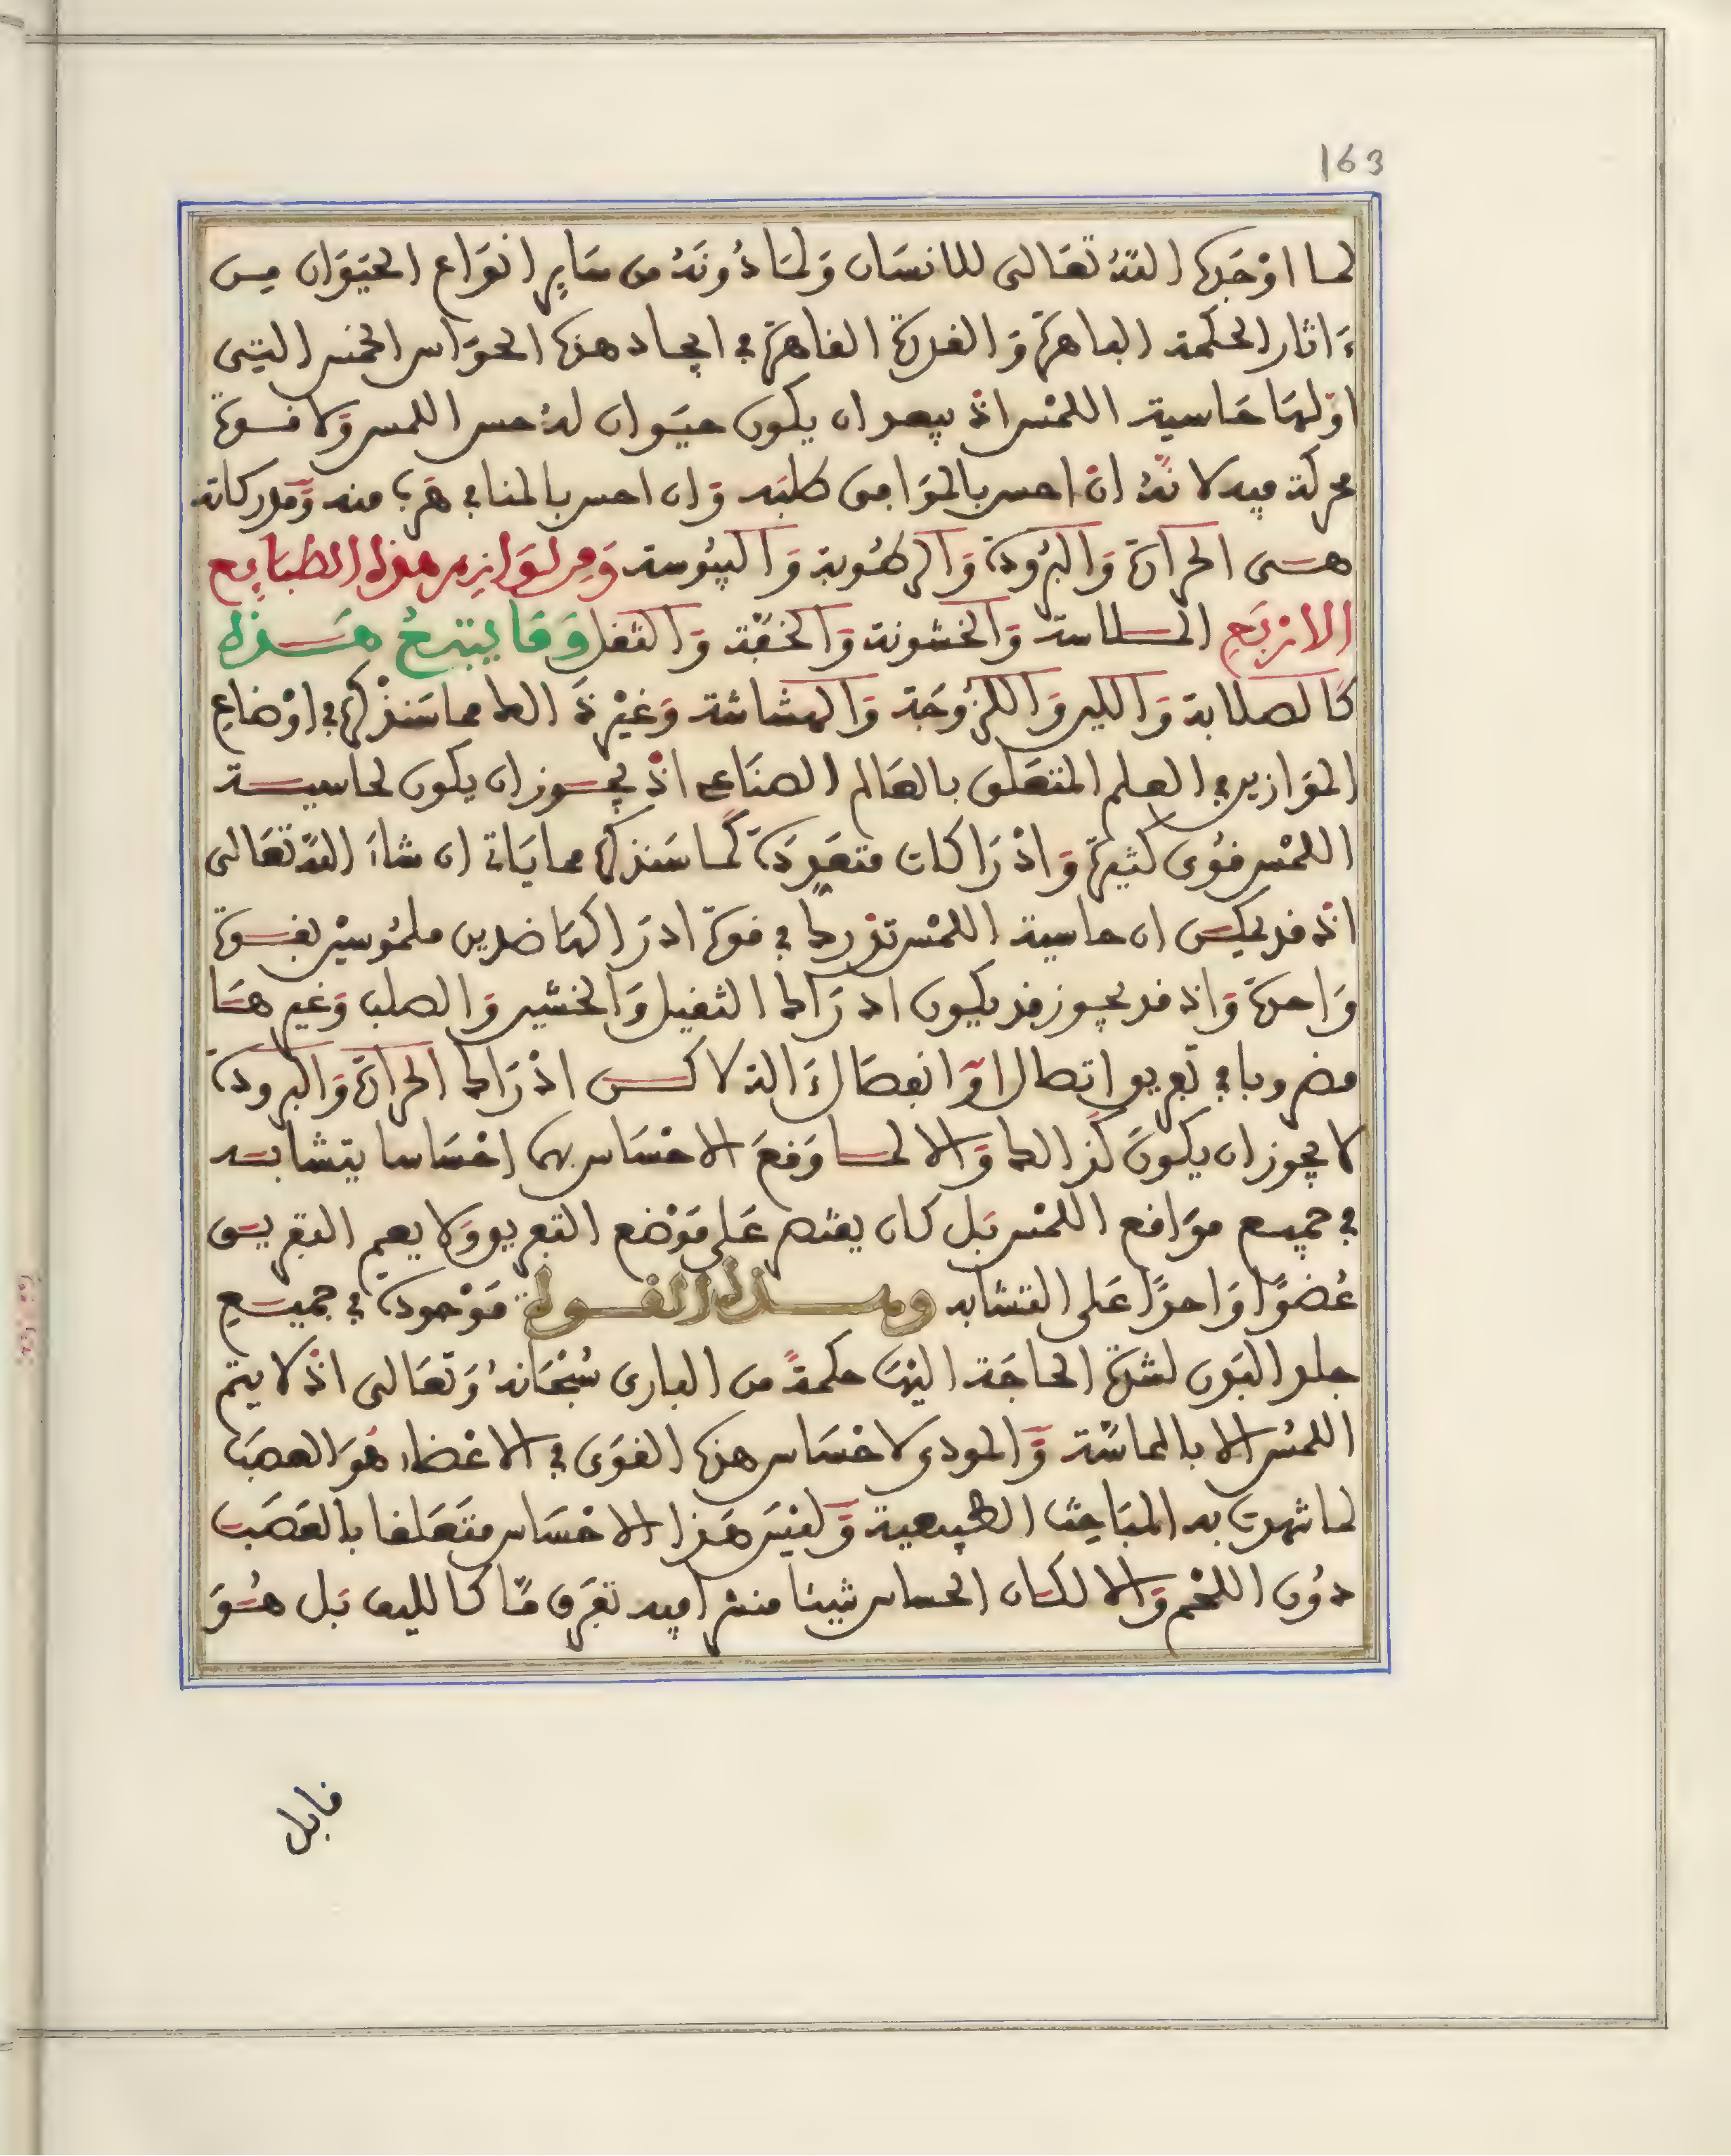 163
لما اوْجَدَهُ اللهُ تعَالى للانسَان وَلمَا دُونَهُ من سَايِر انوَاع الحيَوَان مِن
ءَاثار الحكمة الباهرة وَالقدرة القاهرة في ايجاد هذه الحوَاس الخمس التي
اوّلهَا حَاسية اللمْس اذْ يبعد ان يكون حيَوان لهُ حس اللمس وَلا قوة
محركة فيه لانّهُ انْ احس بالموَافق طلبَه وَان احس بالمنافي هرَب منه وَمدركاته
هى الحرارة وَالبُرودة وَالرطُوبة وَاليبُوسة وَمن لوَازم هذه الطبَايع
الاربَع الملاسة وَالخشونة وَالخفّة وَالثقل وَمَا يتبعُ هَذه
كَالصلابة وَاللين وَاللزُوجَة وَالهشاشة وَغيْر ذَالك مما سَنذْكره في اوْضاع
الموَازين في العلم المتعَلق بالعَالم الصنَاعي اذْ يجوز ان يكون لحاسية
اللمْس قوُى كثيرة وَادْرَاكات متعَدِدَة كَما سَنذكره مما يَاتي ان شاءَ اللهُ تعَالى
اذْ قد يمكن ان حاسية اللمْس تدْرك في قوة ادرَاكهَا ضدين ملمُوسيْن بقوة
وَاحدة وَاذ قد يجوز قد يكون ادرَاك الثقيل وَالخشين وَالصلب وَغيرهَا
مضروبا في تَفريق اتصال اوَ انفصَال ءَالة لاكن ادْرَاك الحرارة وَالبرودة
لا يجوز ان يكونَ كذَالك وَالا لما وَقعَ الاحْسَاس بهما احْسَاسا يتشابه
في جميع موَاقع اللمْس بَل كان يقتصر عَلى مَوْضع التفريق وَلا يعم التفريق
عُضوًا وَاحدًا عَلى التشابه وهذه القوة مَوْجودة في جميع
جلد البَدن لشدة الحاجَة اليْهَا حكمةً من البارى سُبْحَانهُ وَتعَالى اذْ لا يتم
اللمْس الا بالمماسّة وَالمودى لاحْسَاس هذه القوَى في الاعْضاء هُوَ العصَب
لما شهدت به المبَاحِث الطبيعية وَليْسَ هَذا الاحْسَاس متَعَلقا بالعَصَب
دوُن اللحْم وَالا لكان الحساس شيئا منتشرا فيه تفرق مّا كالليف بَل هُوَ
قابل